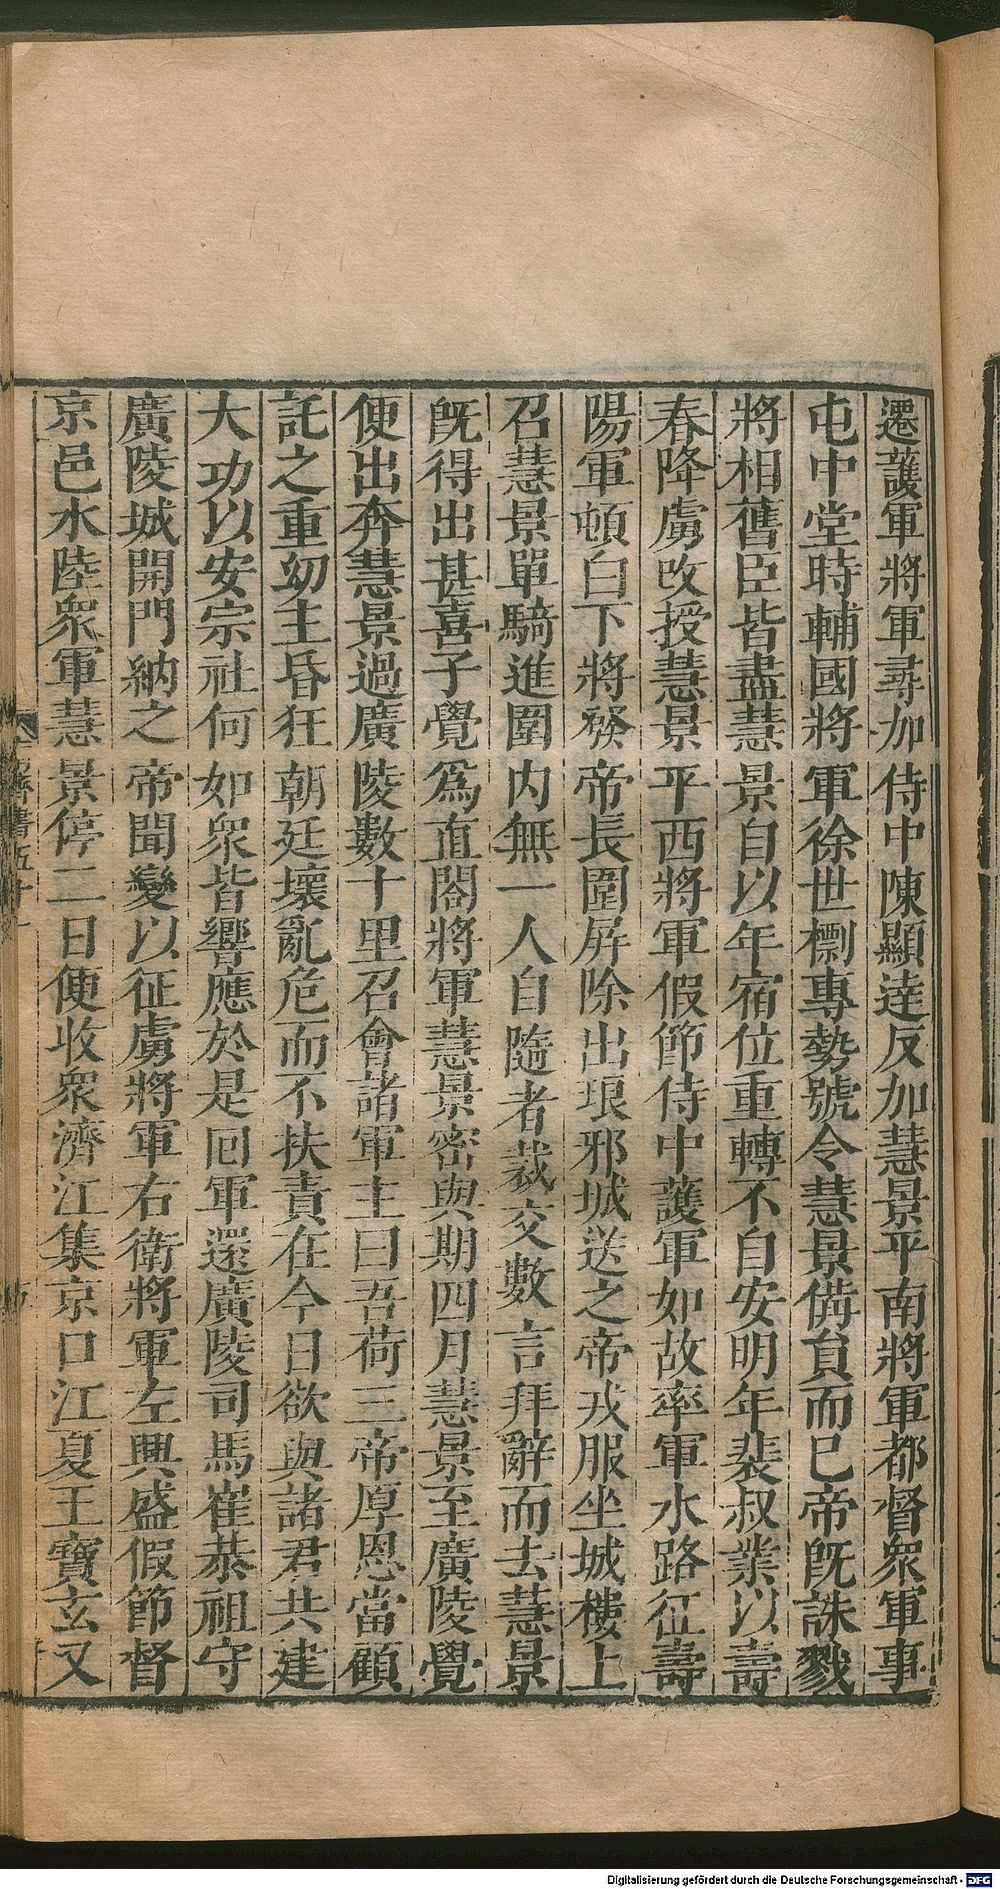 遷護軍將軍尋加侍中陳顯達反加慧景平南將軍都督衆軍事
屯中堂時輔國將軍徐世檦專勢號令慧景備員而已帝旣誅戮
將相舊臣皆盡慧景自以年宿位重轉不自安明年裴叔業以壽
春降虜改授慧景平西將軍假節侍中護軍如故率軍水路征壽
陽軍頓白下將發帝長圍屛除出琅邪城送之帝戎服坐城樓上
召慧景單騎進圍内無一人自隨者裁交數言拜辭而去慧景
旣得出甚喜子覺爲直閤將軍慧景密與期四月慧景至廣陵覺
便出奔慧景過廣陵數十里召會諸軍主曰吾荷三帝厚恩當顧
託之重幼主昏狂朝廷壞亂危而不扶責在今日欲與諸君共建
大功以安宗社何如衆皆響應於是回軍還廣陵司馬崔恭祖守
廣陵城開門納之帝聞變以征虜將軍右衛將軍左興盛假節督
京邑水陸衆軍慧景停二日便收衆濟江集京口江夏王寶玄又
齊書五十一
Digitalisierung gefördert durch die Deutsche Forschungsgemeinschaft - DFG